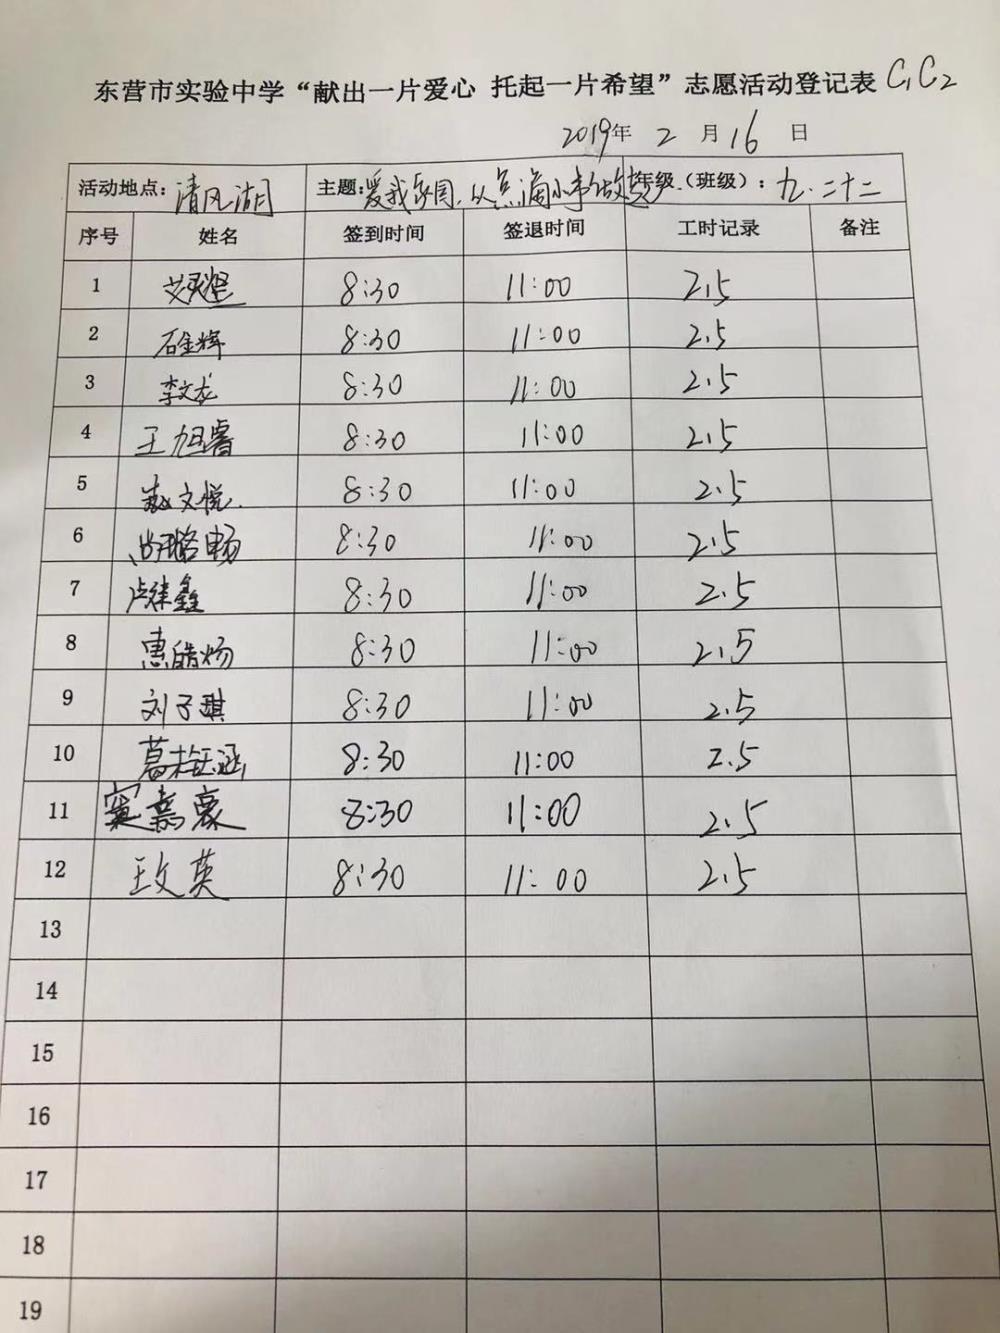 东营市实验中学“献出一片爱心 托起一片希望”志愿活动登记表 C1C2
2019年 2 月 16 日
活动地点：清风湖 主题：爱我家园，从点滴小事做起 年级（班级）：九.二十二
序号 姓名 签到时间 签退时间 工时记录 备注
1 8:30 11:00 2.5
2 石金辉 8:30 11:00 2.5
3 李文龙 8:30 11:00 2.5
4 王旭睿 8:30 11:00 2.5
5 赵文悦. 8:30 11:00 2.5
6 尚璐畅 8:30 11:00 2.5
7 8:30 11:00 2.5
8 惠皓炀 8:30 11:00 2.5
9 刘子琪 8:30 11:00 2.5
10 8:30 11:00 2.5
11 窦嘉豪 8:30 11:00 2.5
12 王文英 8:30 11:00 2.5
13
14
15
16
17
18
19